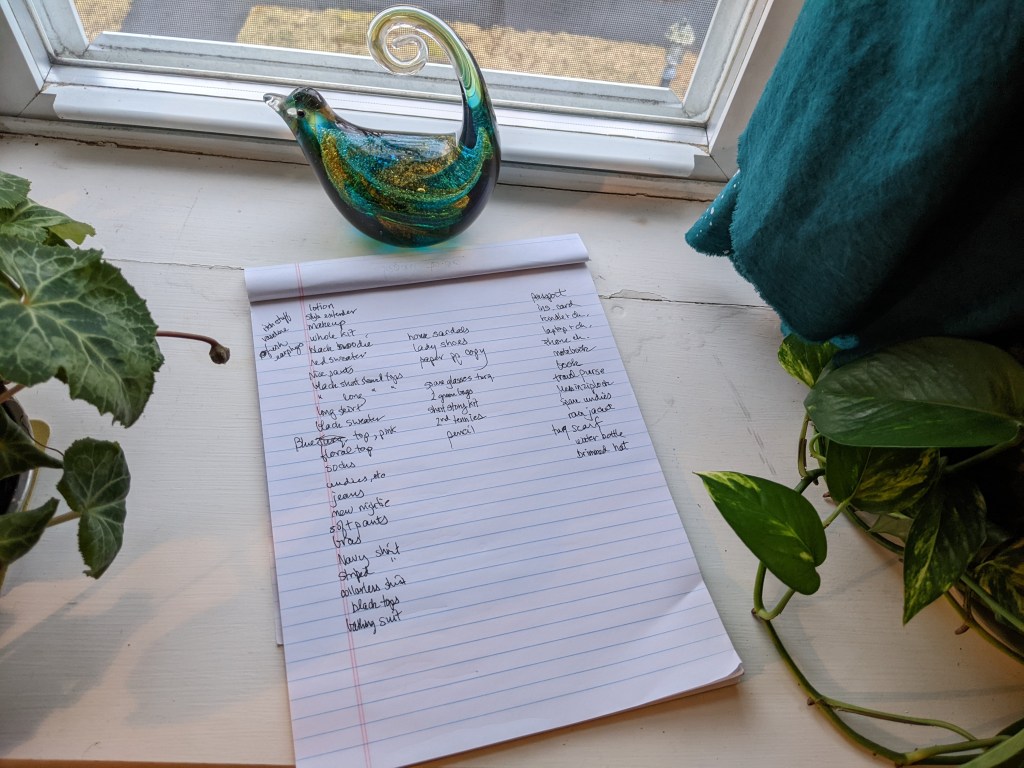 lotion
makeup
whole kit
black hoodie
red sweater
nice pants
black short sleeved tops
" long "
long skirt
black sweater
Blue top, pink
floral top
socks
undies, etc
jeans
new nightie
soft pants
bras
Navy shirt
striped
collarless shirt
black tops
bathing suit
earplugs
home sandals
lady shoes
paper copy
spare glasses
2 green bags
short story kit
2nd tennies
pencil
Passport
ins. card
kindle + ch.
laptop + ch.
phone ch.
notebook
book
travel purse
spare undies
rain jacket
turq scarf
water bottle
brimmed hat